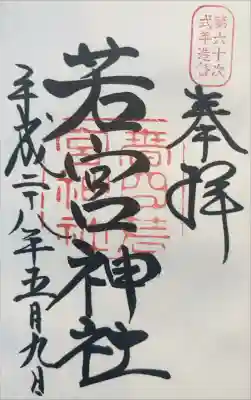 第六十次
式年造替
奉拝
若宮神社
平成二十八年五月九日